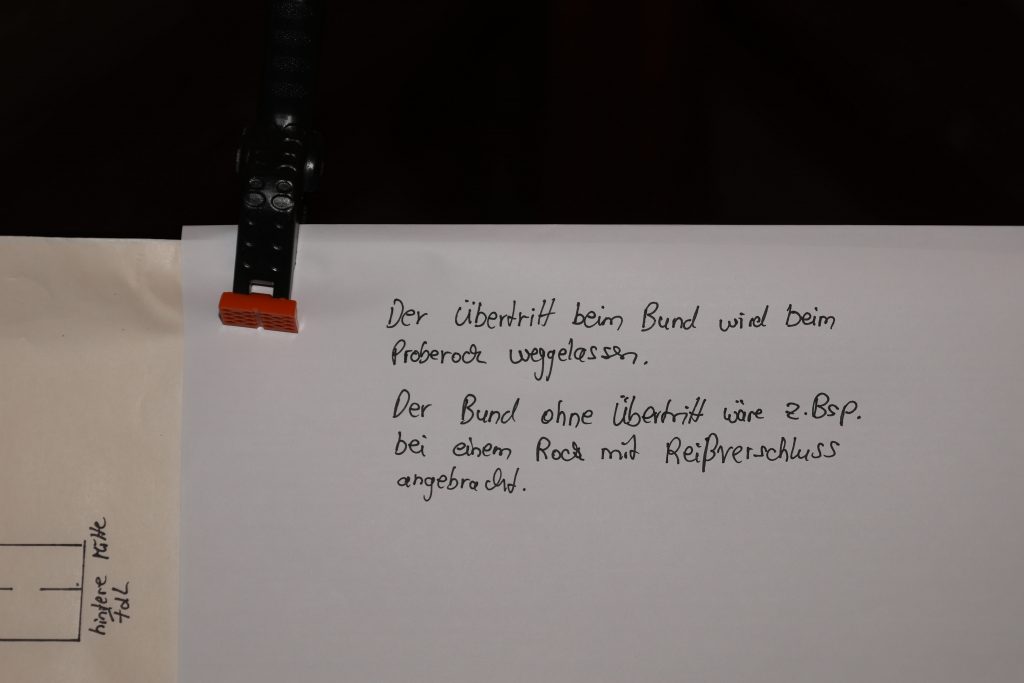 Der Übertritt beim Bund wird beim
Proberock weggelassen.
Der Bund ohne Übertritt wäre z.Bsp.
bei einem Rock mit Reißverschluss
angebracht.
hintere Mitte
FdL